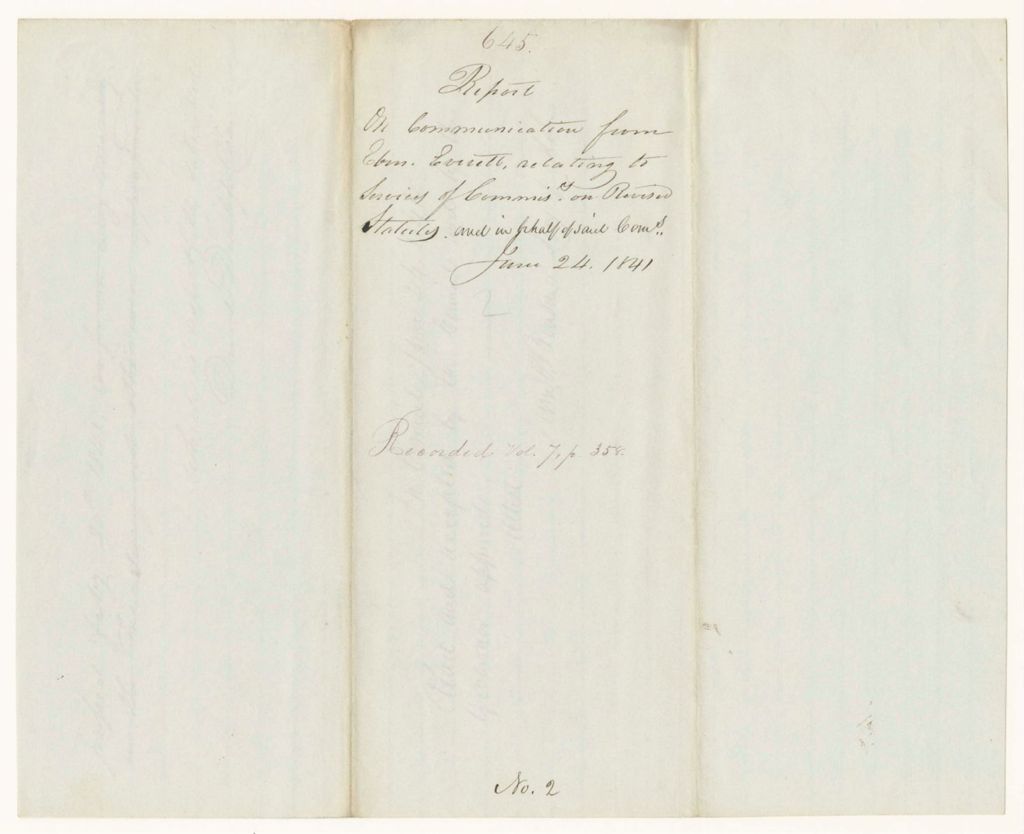 645.
Report
On Communication from
Eben. Everett, relating to
Services of Commis.rs on Revised
Statutes. and in behalf of said Comrs.
June 24. 1841
2
Recorded Vol. 7, p. 358.
No. 2